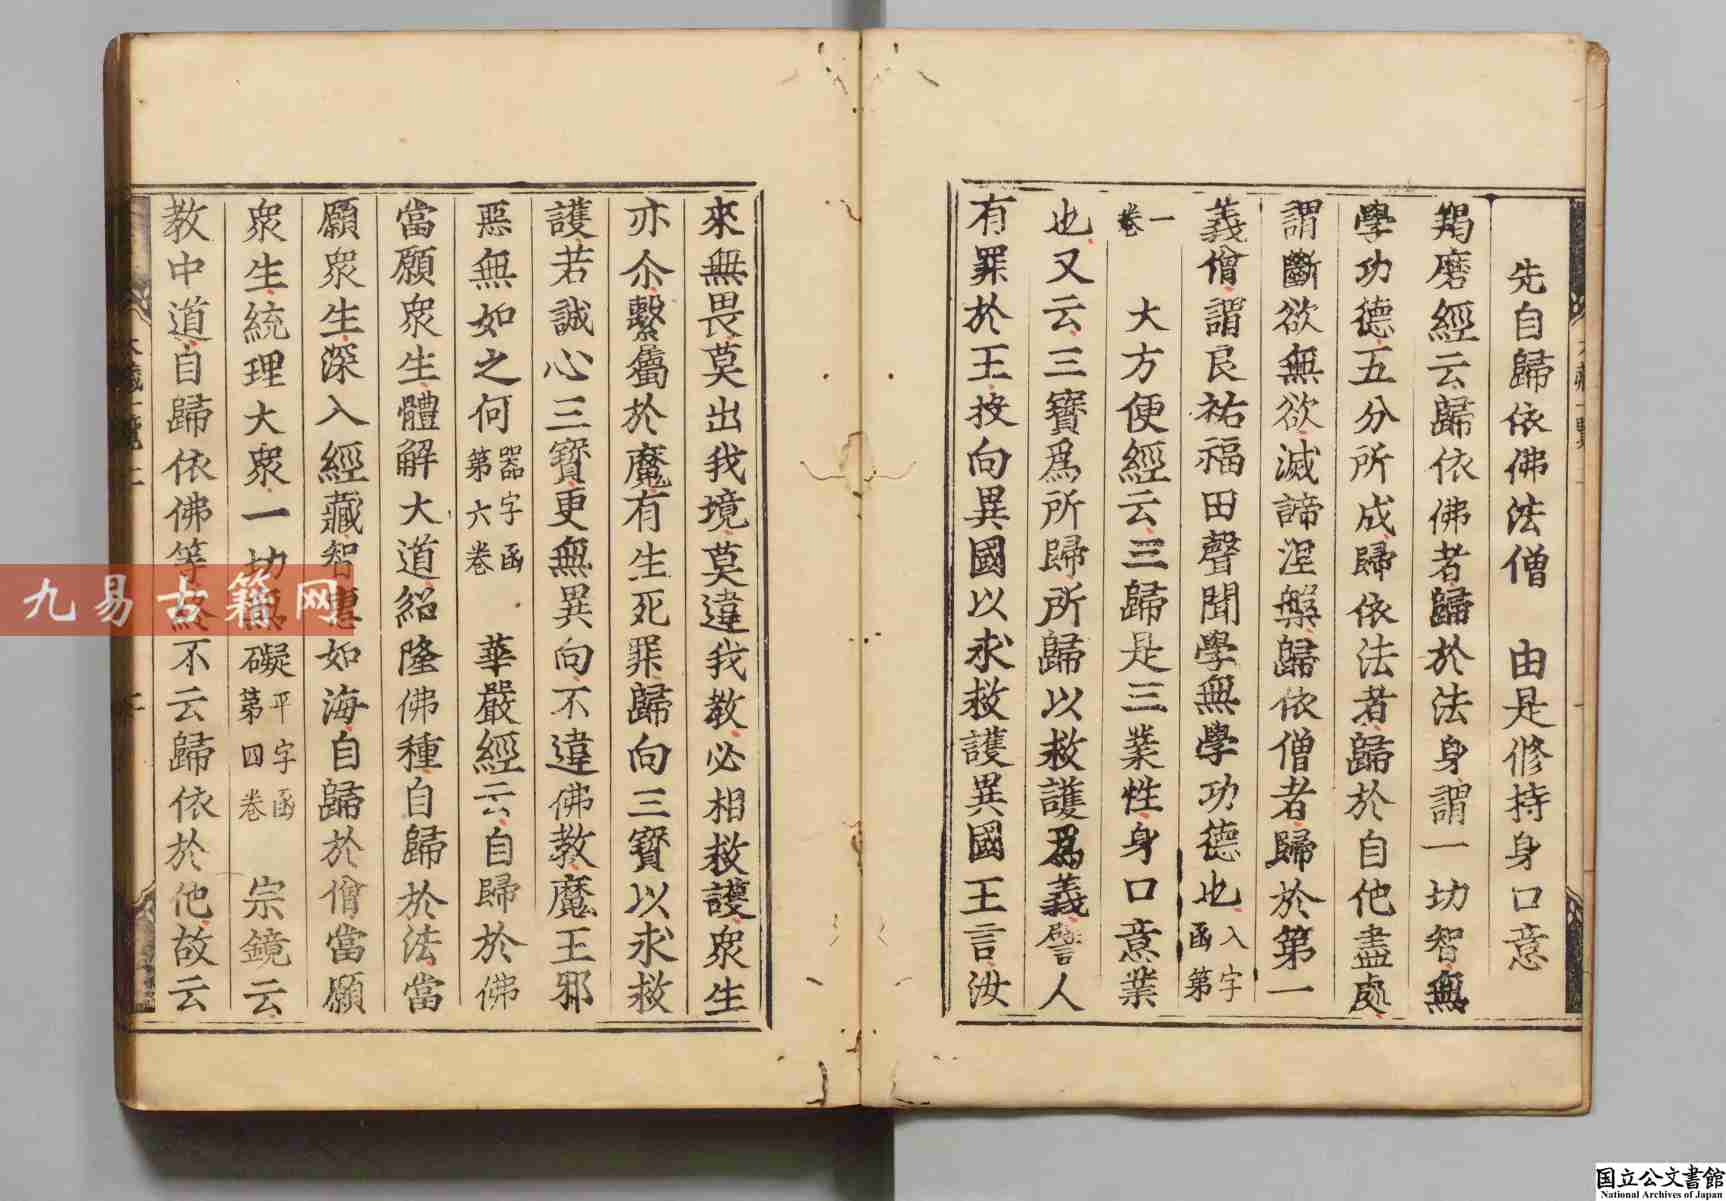 先自歸依佛法僧　由是修持身口意
羯磨經云歸依佛者歸於法身謂一切智無
學功德五分所成歸依法者歸於自他盡處
謂斷欲無欲滅諦涅槃歸依僧者歸於第一
義僧謂良祐福田聲聞學無學功德也入字函第
一卷　大方便經云三歸是三業性身口意業
也又云三寶爲所歸所歸以救護爲義譬人
有罪於王投向異國以求救護異國王言汝
來無畏莫出我境莫違我教必相救護衆生
亦尒繫屬於魔有生死罪歸向三寶以求救
護若誠心三寶更無異向不違佛教魔王邪
惡無如之何器字函第六卷　華嚴經云自歸於佛
當願衆生體解大道紹隆佛種自歸於法當
願衆生深入經藏智慧如海自歸於僧當願
衆生統理大衆一切無礙平字函第四卷　宗鏡云
教中道自歸依佛等終不云歸依於他故云
九易古籍网
国立公文書館
National Archives of Japan